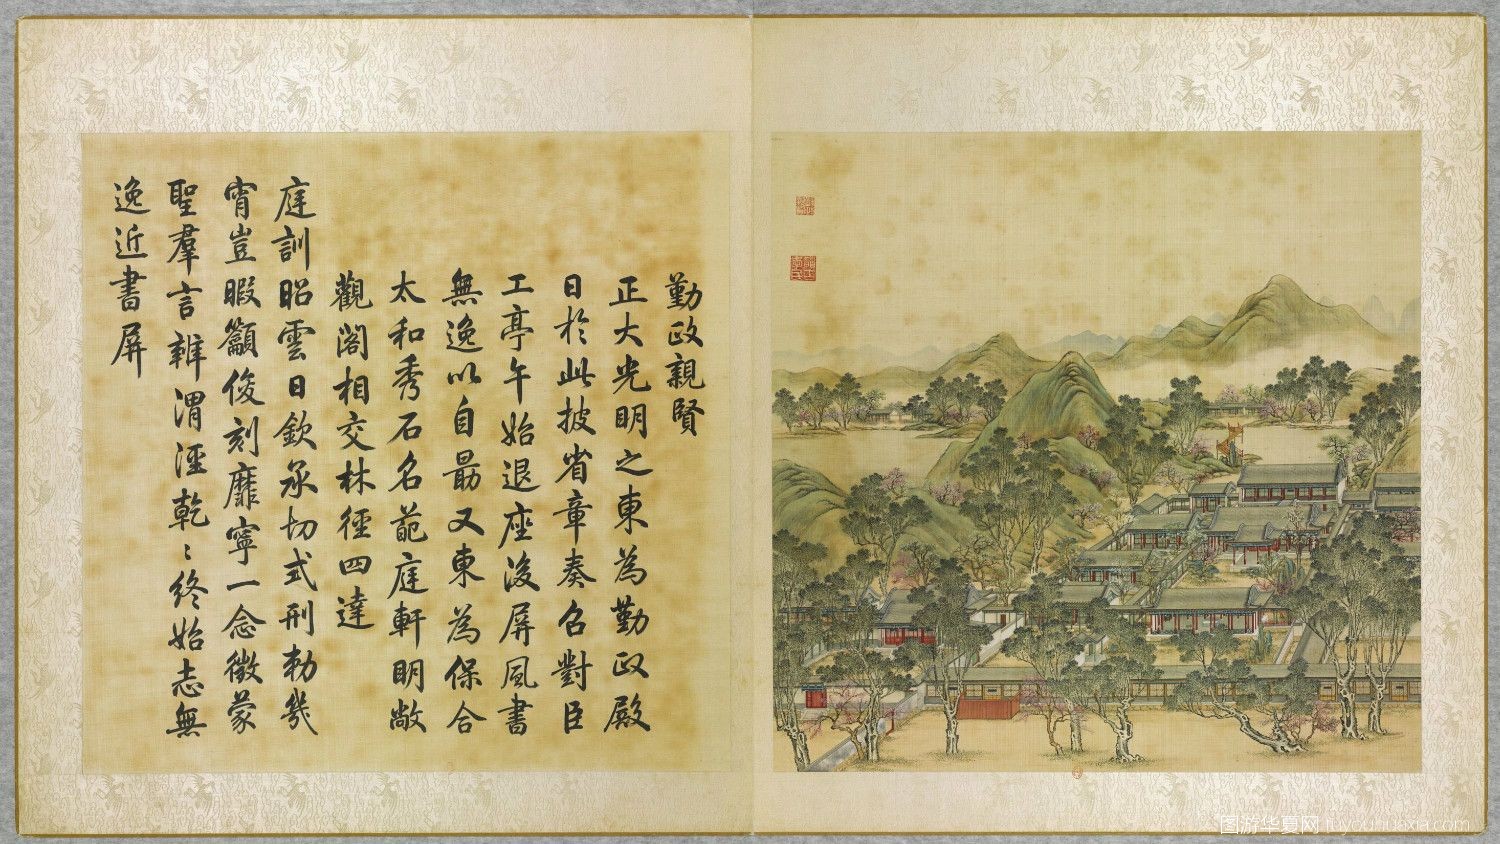 勤政親賢
正大光明之東為勤政殿
日於此披省章奏召對臣
工亭午始退座後屏風書
無逸以自勗又東為保合
太和秀石名葩庭軒明敞
觀閣相交林徑四達
庭訓昭雲日欽承切式刑勅幾
宵豈暇籲俊刻靡寧一念徵蒙
聖羣言辨渭涇乾〻終始志無
逸近書屏
图游华夏网 tuyouhuaxia.com